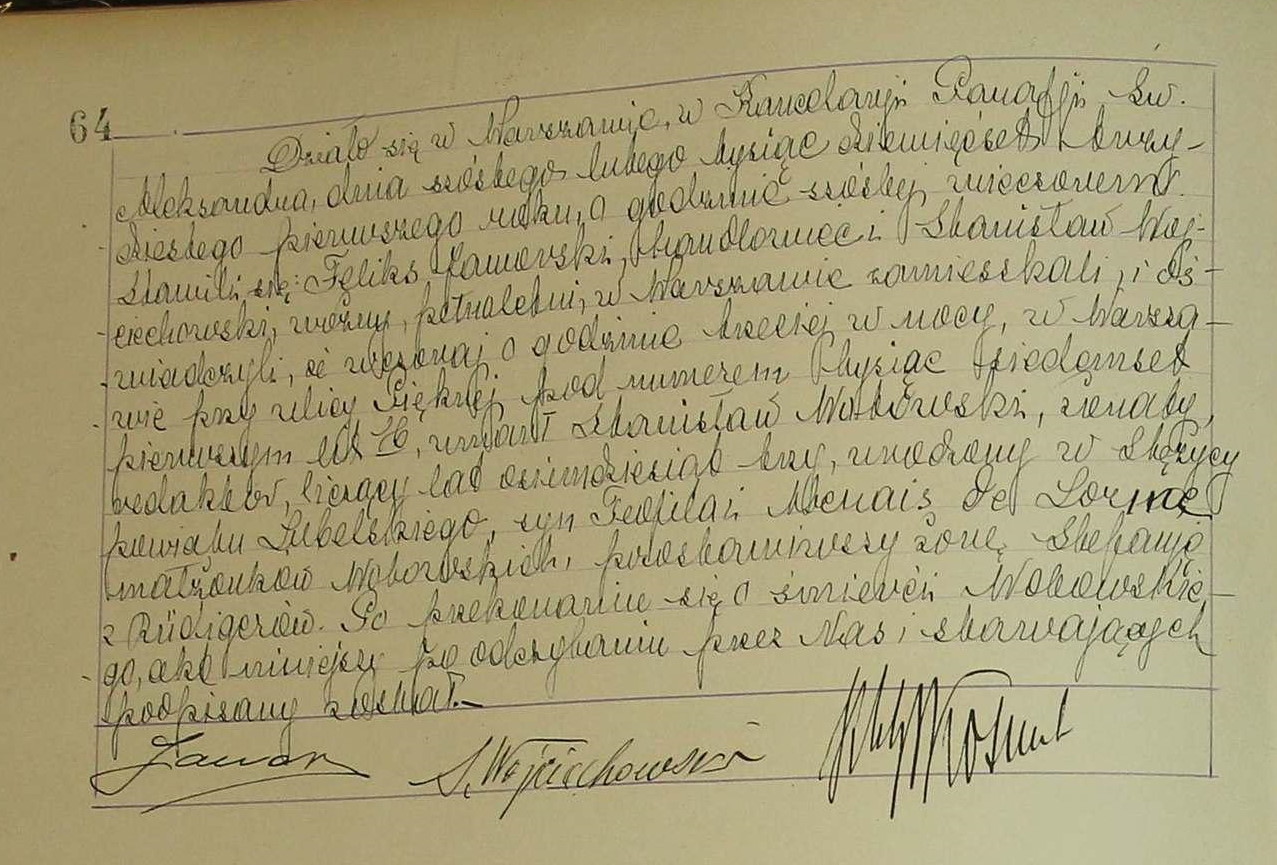 64
Działo się w Warszawie, w Kancelaryi Parafji św.
Aleksandra, dnia szóstego lutego tysiąc dziewięćset dwu-
dziestego pierwszego roku, o godzinie szóstej wieczorem.
Stawili się: Feliks handlowiec i Stanisław Woj-
ciechowski, woźny, pełnoletni, w Warszawie zamieszkali, i oś-
wiadczyli, że wczoraj o godzinie trzeciej w nocy, w Warsza-
wie przy ulicy Pięknej pod numerem tysiąc siedemset
pierwszym lit umarł Stanisław żonaty,
redaktor, liczący lat ośmdziesiąt trzy, urodzony w Stężycy
powiatu Lubelskiego, syn Teofila i De
małżonków pozostawiwszy żonę Stefanję
z Rüdigerów. Po przekonaniu się o śmierci
go, akt niniejszy po odczytaniu przez Nas i stawających
podpisany został.
S. Wojciechowski